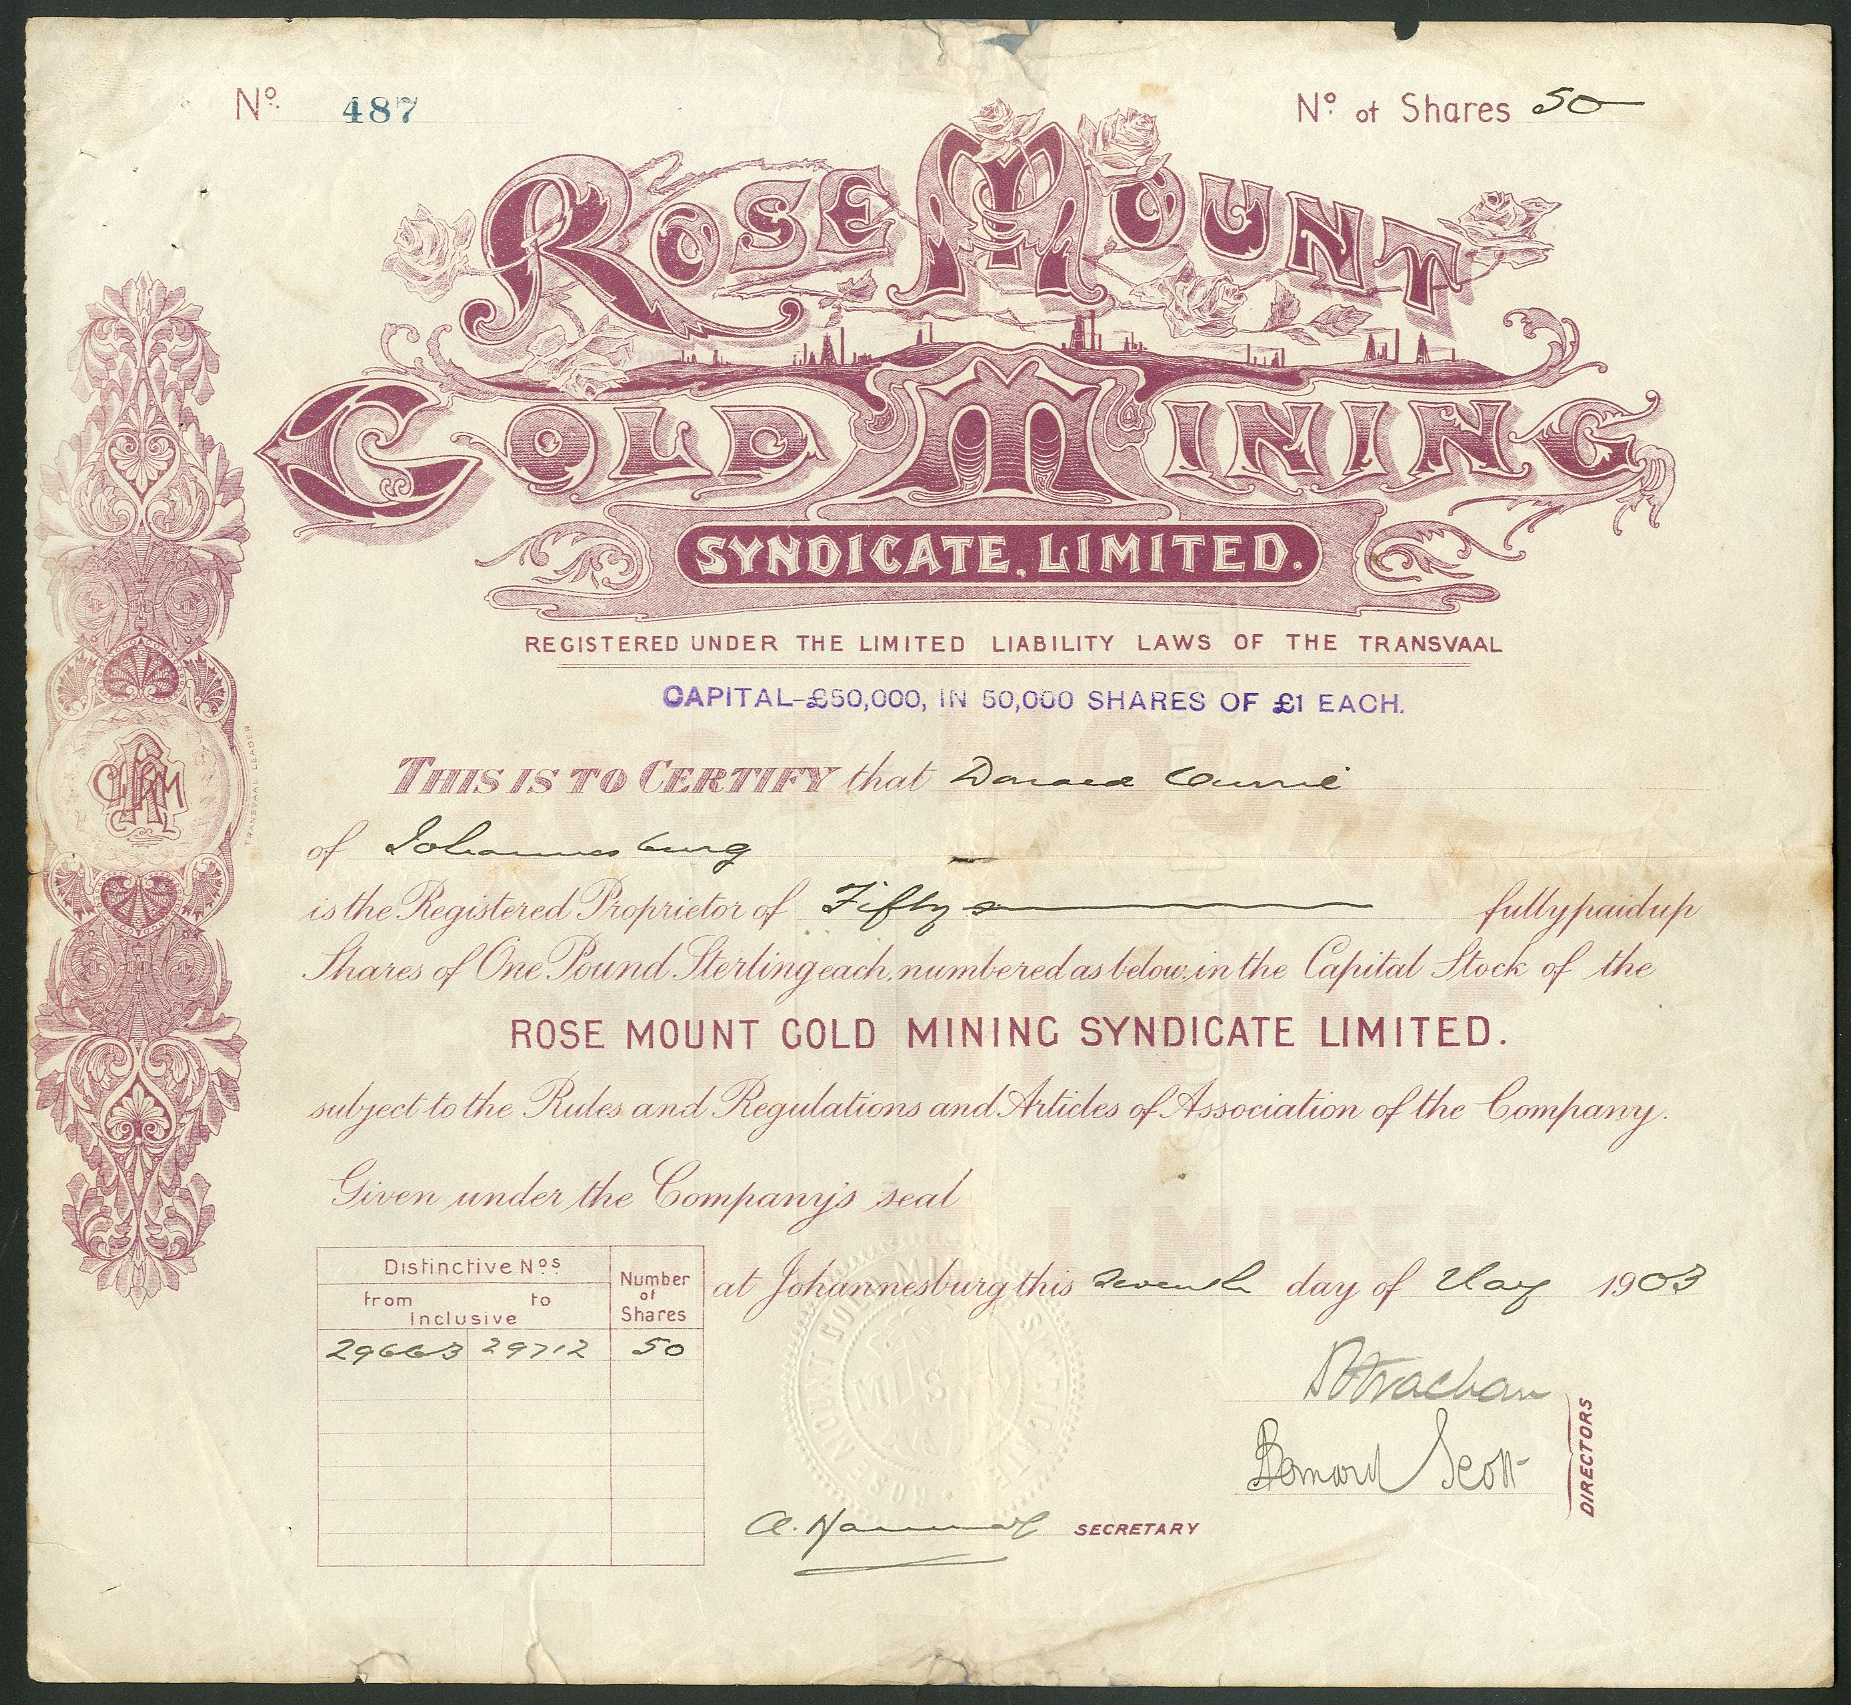 Nº 487
Nº of Shares 50
ROSE MOUNT
GOLD MINING
SYNDICATE, LIMITED.
REGISTERED UNDER THE LIMITED LIABILITY LAWS OF THE TRANSVAAL
CAPITAL-£50,000, IN 50,000 SHARES OF £1 EACH.
THIS IS TO CERTIFY that Donald Currie
of Johannesburg
TRANSVAAL LEADER
is the Registered Proprietor of Fifty fully paid up
Shares of One Pound Sterling each, numbered as below, in the Capital Stock of the
ROSE MOUNT GOLD MINING SYNDICATE LIMITED.
subject to the Rules and Regulations and Articles of Association of the Company.
Given under the Company's seal
at Johannesburg this seventh day of May 1903
Distinctive Nos
from to
Inclusive
Number of Shares
29663 29712 50
Bernard Scott
DIRECTORS
SECRETARY